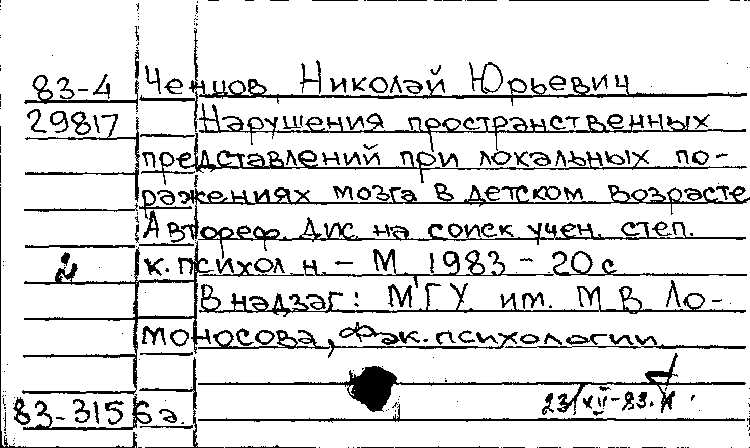 83-4 Ченцов, Николай Юрьевич
29817 Нарушения пространственных
представлений при локальных по-
ражениях мозга в детском возрасте
Автореф. дис. на соиск учен. степ.
к. психол н. - М, 1983 - 20 с
В надзаг: МГУ им. М В Ло-
моносова, Фак. психологии
83-3156а. 23/XII-83.